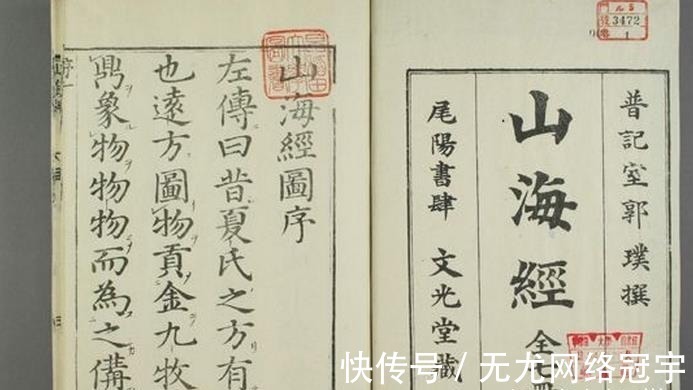 3472
1
普記室郭璞撰
山海經 全
尾陽書肆 文光堂藏
山海經圖序
左傳曰昔夏氏之方有
也遠方圖物貢金九牧
象物物物而為之備
序一
快传号 / 无尤网络冠宇